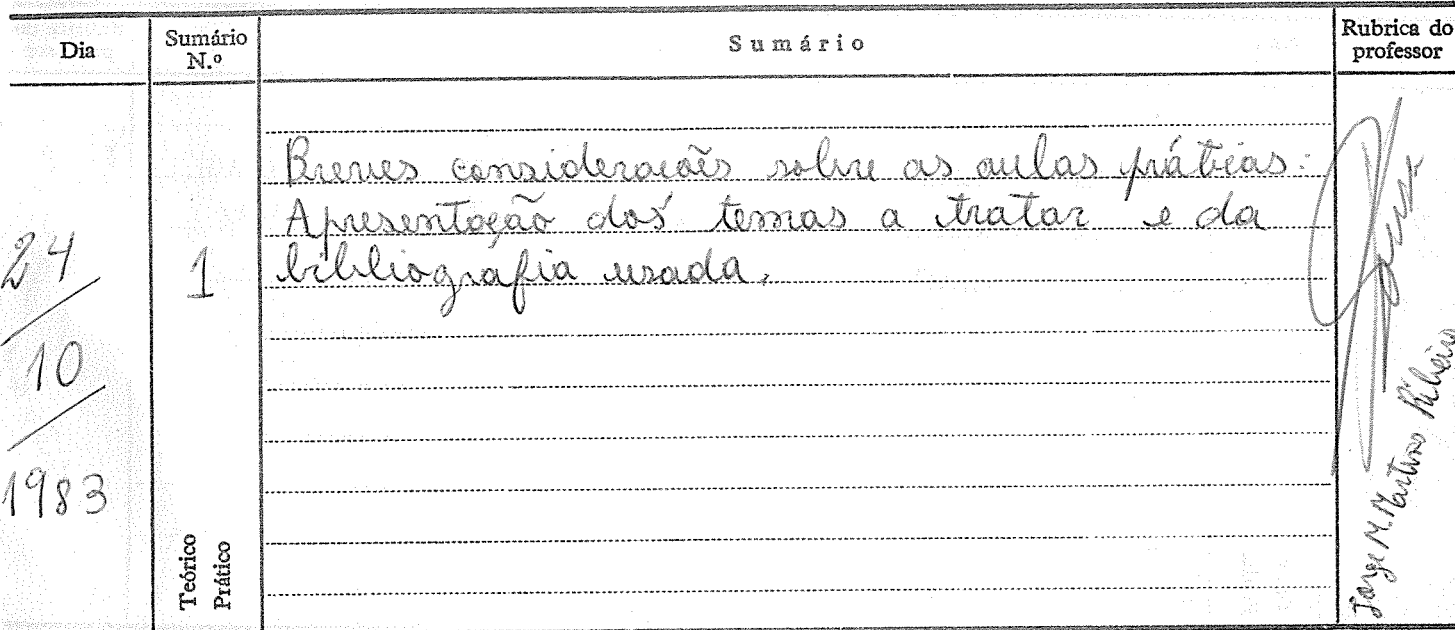 Dia
Sumário
N.º
Sumário
Rubrica do
professor
24
10
1983
1
Breves considerações sobre as aulas práticas.
Apresentação dos temas a tratar e da
bibliografia usada.
Teórico
Prático
Jorge M. Martins Ribeiro